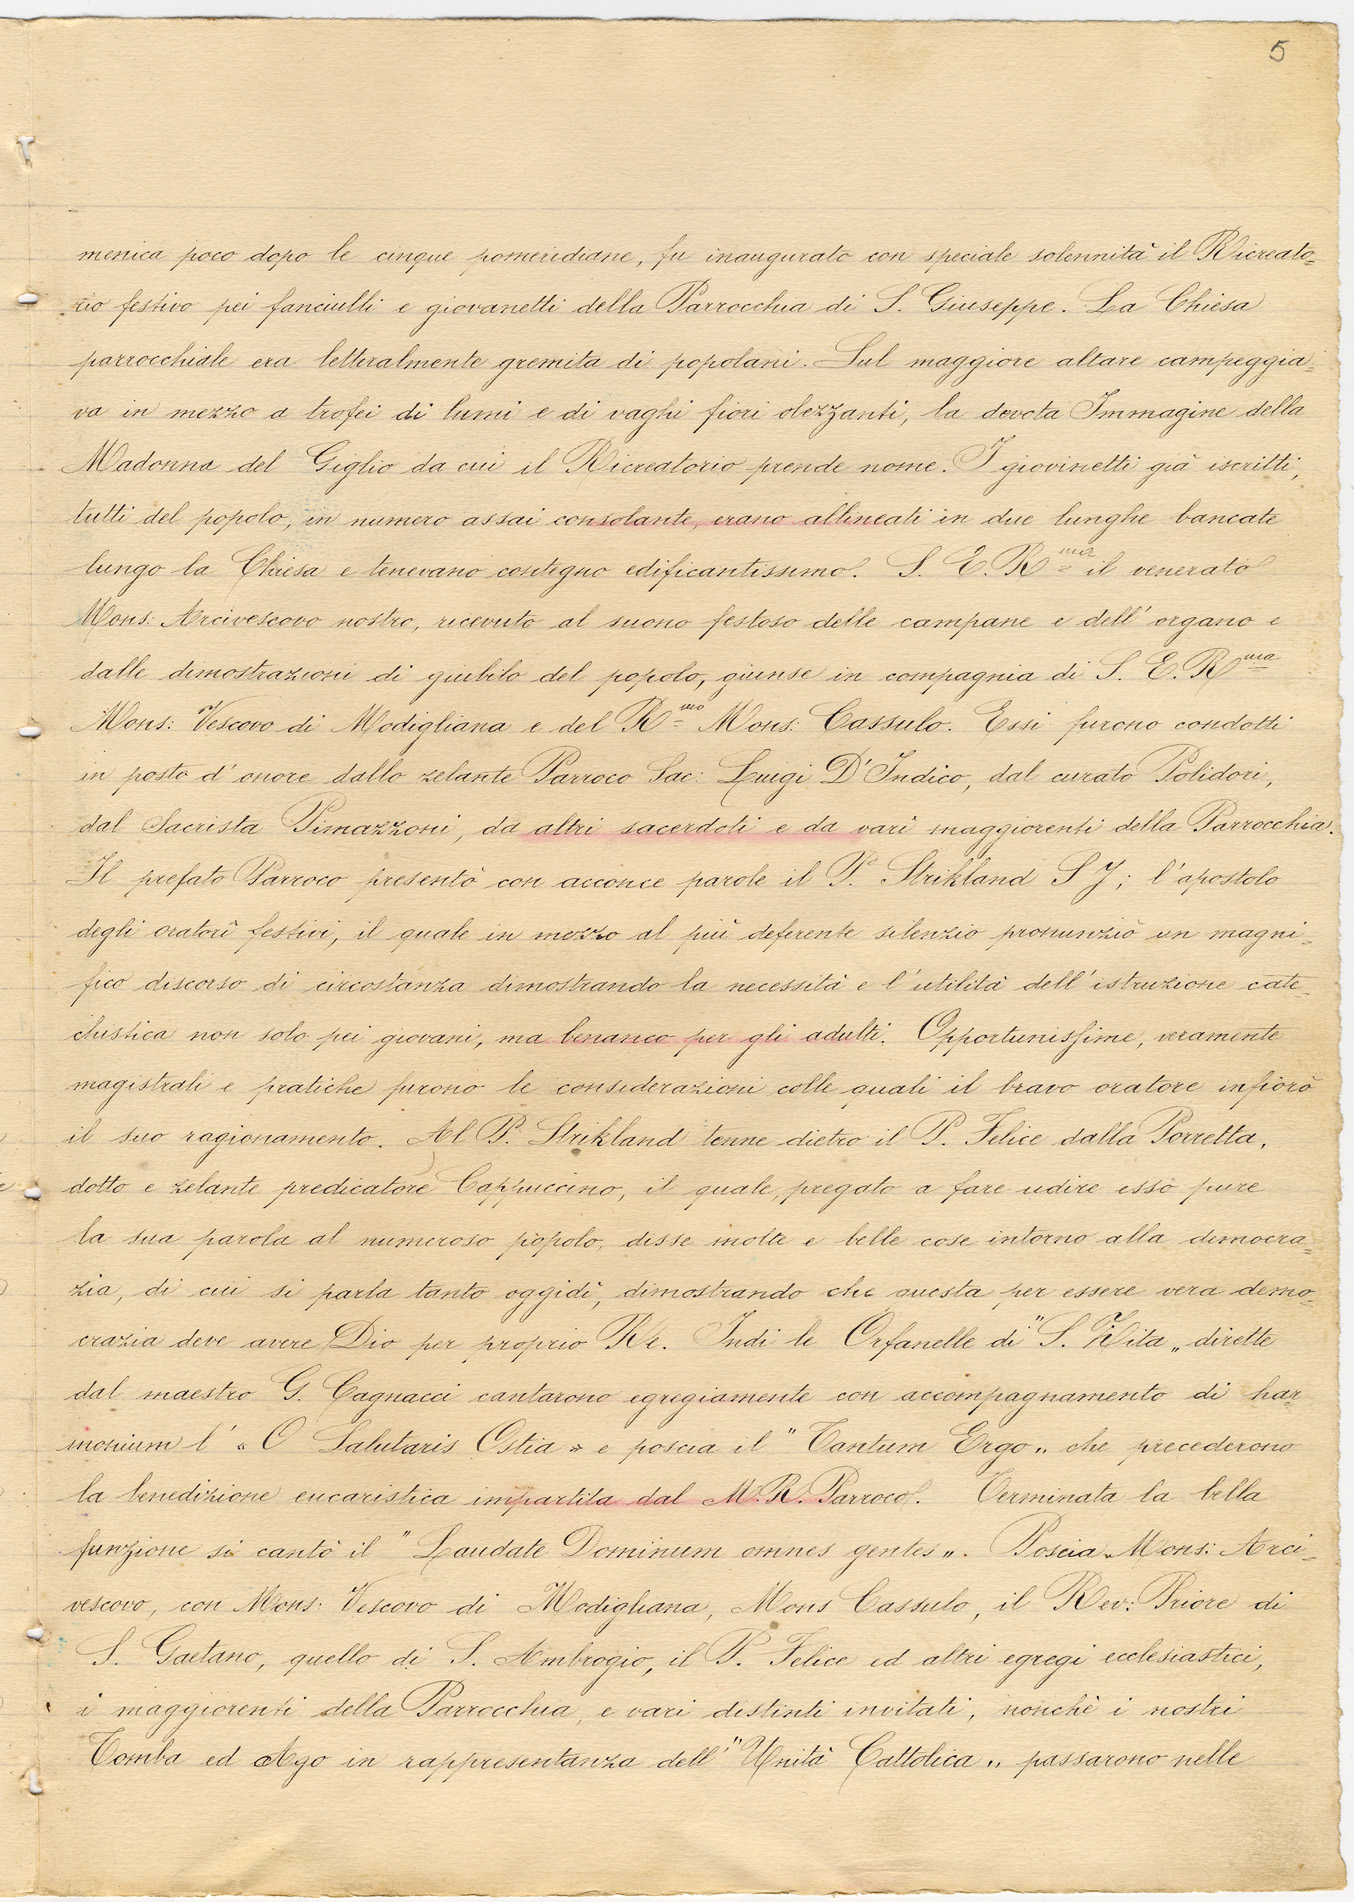 5
menica poco dopo le cinque pomeridiane, fu inaugurato con speciale solennità il Ricreato=
rio festivo pei fanciulli e giovanetti della Parrocchia di S. Giuseppe. La Chiesa
parrocchiale era letteralmente gremita di popolani. Sul maggiore altare campeggia=
va in mezzo a trofei di lumi e di vaghi fiori olezzanti, la devota Immagine della
Madonna del Giglio da cui il Ricreatorio prende nome. I giovinetti già iscritti,
tutti del popolo, in numero assai consolante, erano allineati in due lunghe bancate
lungo la Chiesa e tenevano contegno edificantissimo. S. E. R.ma il venerato
Mons: Arcivescovo nostro, ricevuto al suono festoso delle campane e dell'organo e
dalle dimostrazioni di giubilo del popolo, giunse in compagnia di S. E. R.ma
Mons: Vescovo di Modigliana e del R.mo Mons: Cassulo. Essi furono condotti
in posto d'onore dallo zelante Parroco Sac: Luigi D'Indico, dal curato Polidori,
dal Sacrista Pimazzoni, da altri sacerdoti e da vari maggiorenti della Parrocchia.
Il prefato Parroco presentò con acconce parole il P. Strikland S J; l'apostolo
degli oratori festivi, il quale in mezzo al più deferente silenzio pronunziò un magni=
fico discorso di circostanza dimostrando la necessità e l'utilità dell'istruzione cate=
chistica non solo pei giovani, ma benanco per gli adulti. Opportunissime, veramente
magistrali e pratiche furono le considerazioni colle quali il bravo oratore infiorò
il suo ragionamento. Al P. Strikland tenne dietro il P. Felice dalla Porretta,
dotto e zelante predicatore Cappuccino, il quale, pregato a fare udire esso pure
la sua parola al numeroso popolo, disse molte e belle cose intorno alla democra=
zia, di cui si parla tanto oggidì, dimostrando che questa per essere vera demo=
crazia deve avere Dio per proprio Re. Indi le Orfanelle di "S. Zita„ dirette
dal maestro G. Cagnacci cantarono egregiamente con accompagnamento di har=
monium l' «O Salutaris Ostia» e poscia il "Tantum Ergo„ che precederono
la benedizione eucaristica impartita dal M. R. Parroco. Terminata la bella
funzione si cantò il "Laudate Dominum omnes gentes„. Poscia Mons: Arci=
vescovo, con Mons: Vescovo di Modigliana, Mons Cassulo, il Rev: Priore di
S. Gaetano, quello di S. Ambrogio, il P. Felice ed altri egregi ecclesiastici,
i maggiorenti della Parrocchia, e vari distinti invitati, nonchè i nostri
Tomba ed Ago in rappresentanza dell' "Unità Cattolica„ passarono nelle